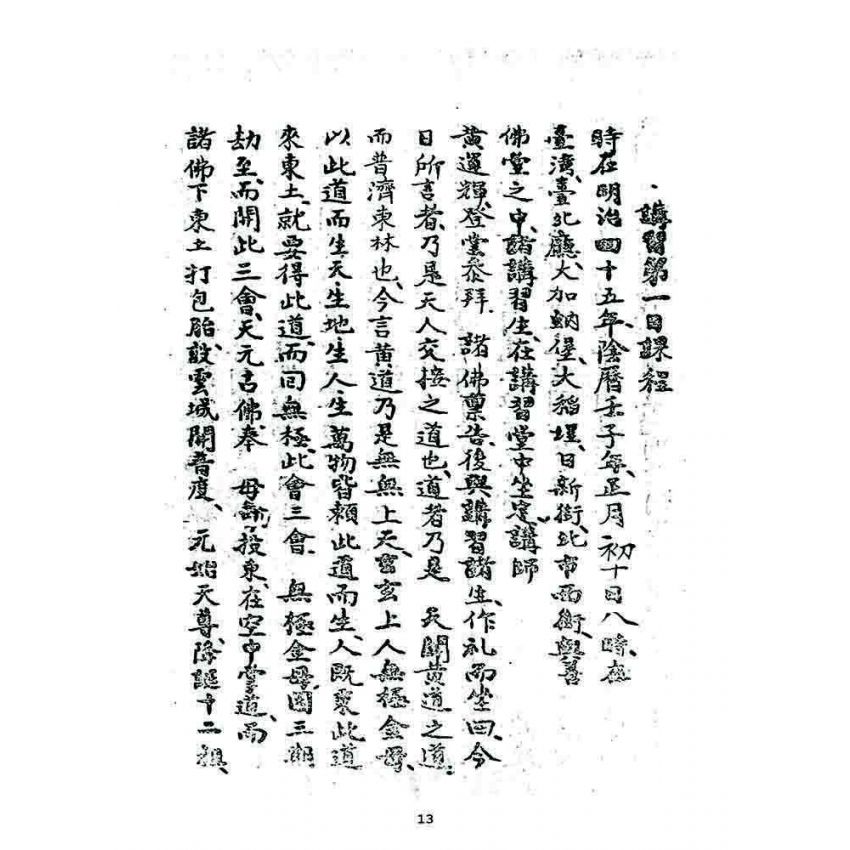 講習第一日課程
時在明治四十五年、陰曆壬子年、正月初十日八時、在
臺灣、臺北廳、大加蚋堡、大稻埕、日新街、北市西街、與善
佛堂之中、諸講習生、在講習堂中坐定、講師
黃運輝、登堂叅拜 諸佛稟告、後與講習諸生、作礼而坐曰、今
日所言者、乃是天人交接之道也、道者乃是 天開黃道之道、
而普濟東林也、今言黃道乃是無無上天、雷玄上人無極金母、
以此道而生天、生地、生人、生萬物皆賴此道而生、人既稟此道
來東土、就要得此道、而回無極、此會三會 無極金母、因三期
劫至、而開此三會、天元古佛、奉 母命投東、在空中掌道、而
諸佛下東土打包胎、設雲城開普度、 元始天尊、降誕十二祖、
13